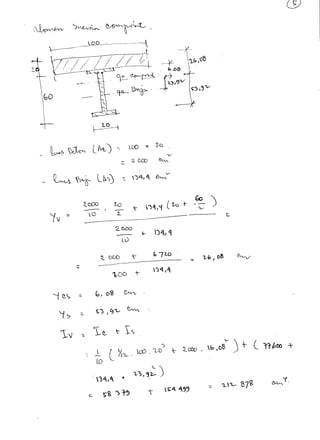 5
Momen Inersia Composit.
100
20
60
20
6.08
26,08
53,92
53,92
ga. composit
ga. Baja
- Luas Beton (Ac) : 100 x 20
= 2000 cm²
- Luas Baja (As) : 134,4 cm²
Yv = 2000/10 . 20/2 + 134,4 (20 + 60/2) =
2000/10 + 134,4
= 2000 + 6720 = 26,08 cm
200 + 134,4
Yc = 6,08 cm
Ys = 53,92 cm
Iv = Ic + Is
: 1/10 (1/12 . 100 . 20³ + 2000 . 16,08²) + (77600 +
134,4 . 23,92²)
= 58 379 + 154 499 = 212 878 cm⁴.